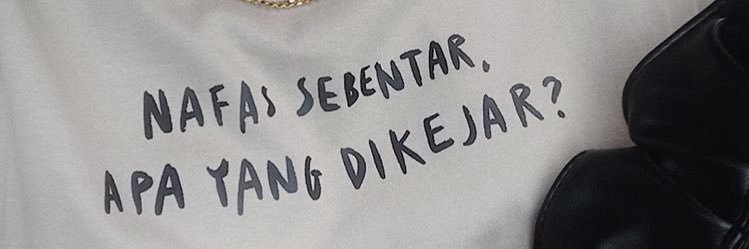 NAFAS SEBENTAR,
APA YANG DIKEJAR?